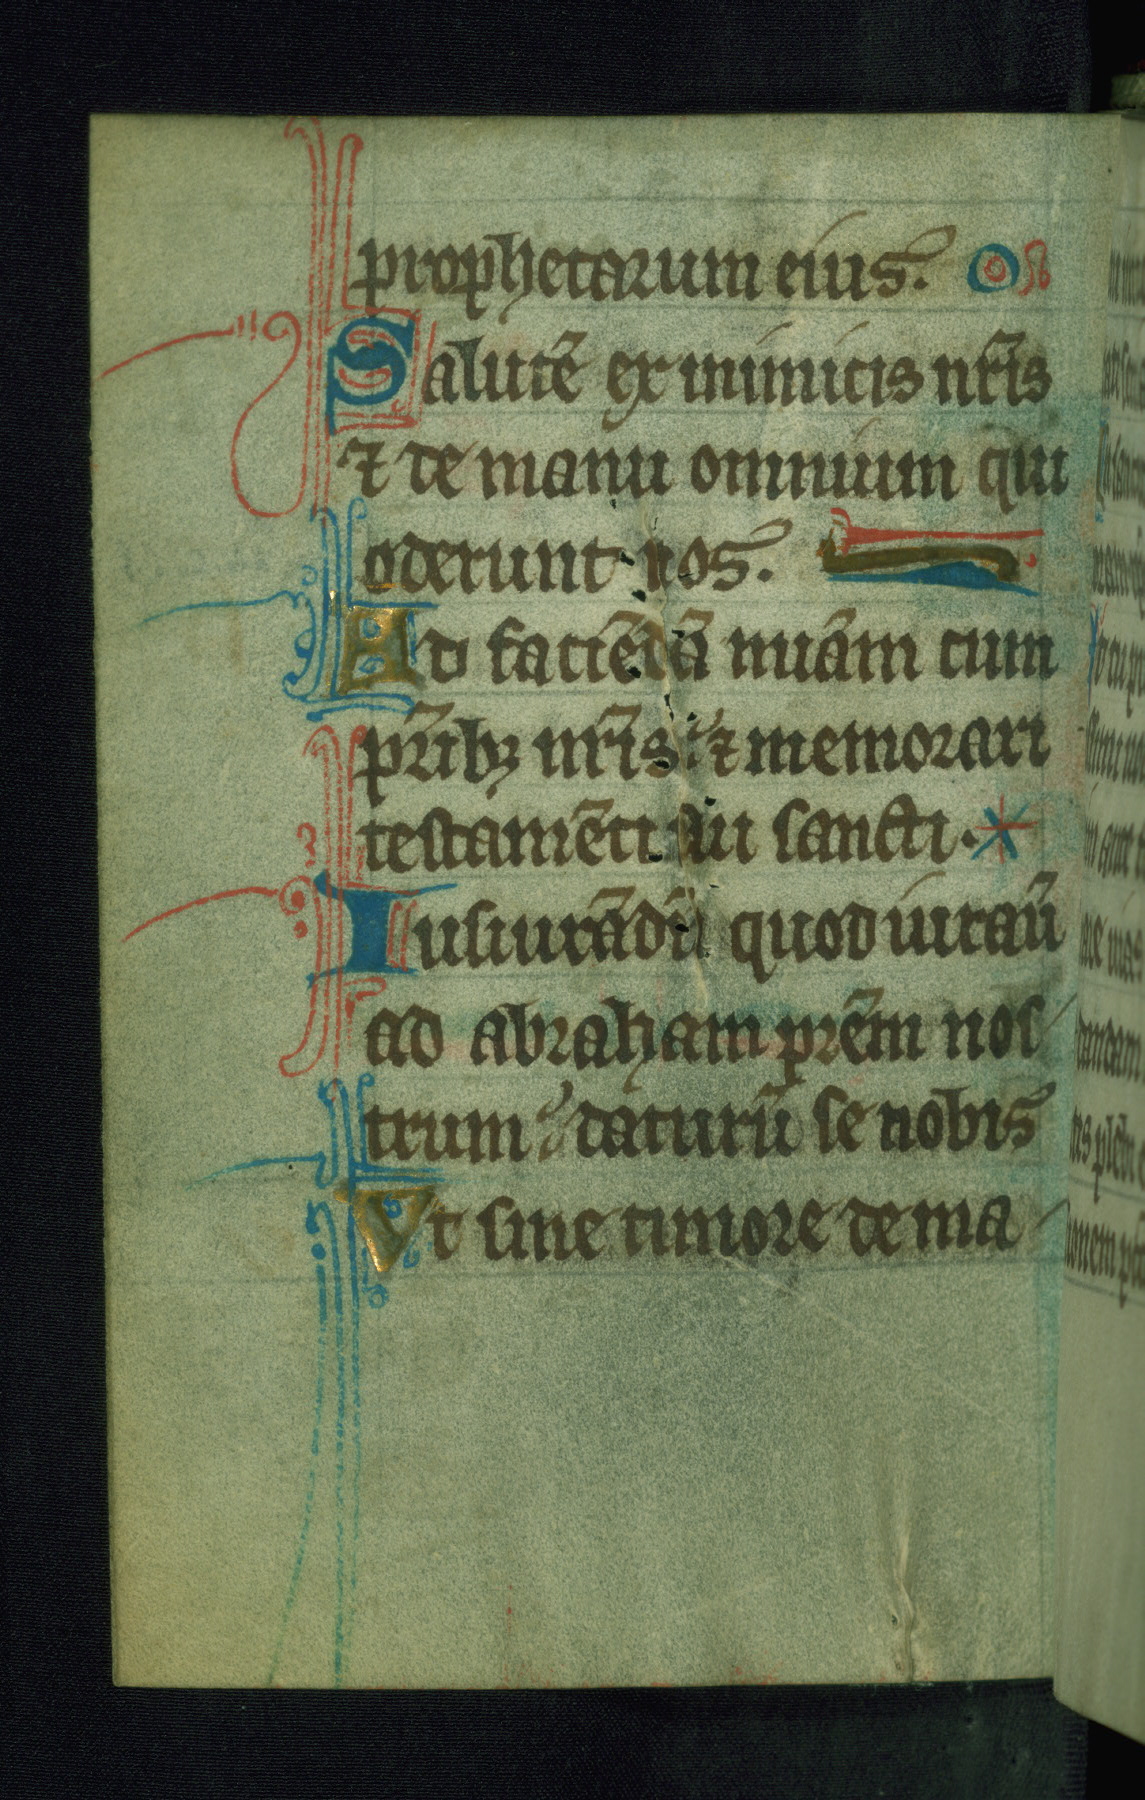 prophetarum eius.
Salutē ex inimicis nr̄is
⁊ de manu omnium qui
oderunt nos.
Ad faciēdā miām cum
pr̄ibꝫ nr̄is ⁊ memorari
testamēti sui sancti.
Iusiurādū quod iurauͥ
ad abraham prēm nos
trum daturū se nobis
Vt sine timore de ma